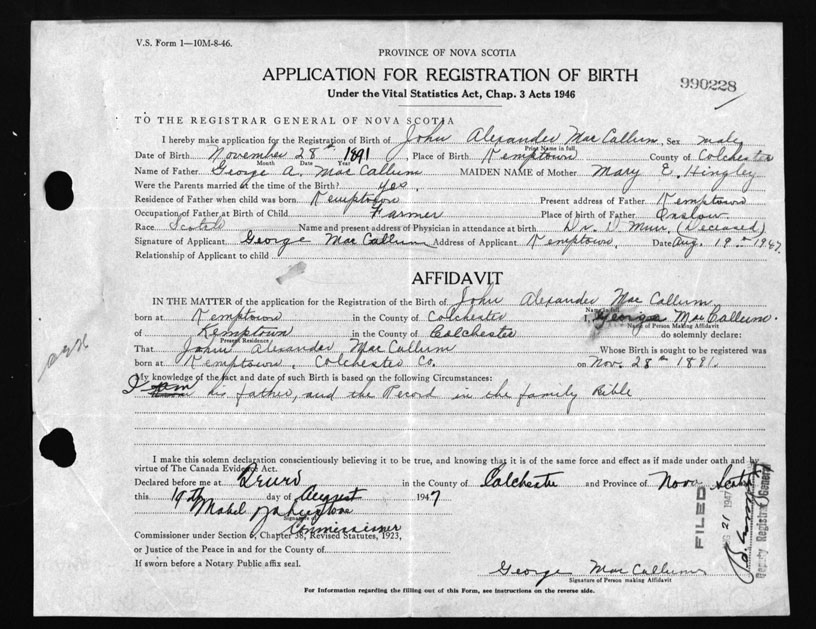 V.S. Form 1—10M-8-46.
PROVINCE OF NOVA SCOTIA
APPLICATION FOR REGISTRATION OF BIRTH
990228
Under the Vital Statistics Act, Chap. 3 Acts 1946
TO THE REGISTRAR GENERAL OF NOVA SCOTIA
I hereby make application for the Registration of Birth of John Alexander MacCallum, Sex male
Print Name in full
Date of Birth November 28th 1891, Place of Birth Kemptown County of Colchester
Month Date Year
Name of Father George A. MacCallum MAIDEN NAME of Mother Mary E. Hingley
Were the Parents married at the time of the Birth? yes.
Residence of Father when child was born Kemptown Present address of Father Kemptown
Occupation of Father at Birth of Child Farmer Place of birth of Father Onslow
Race Scotch Name and present address of Physician in attendance at birth Dr. D Muir, (Deceased)
Signature of Applicant George MacCallum Address of Applicant Kemptown, Date Aug. 19th 1947
Relationship of Applicant to child
AFFIDAVIT
IN THE MATTER of the application for the Registration of the Birth of John Alexander MacCallum
Name in full
born at Kemptown in the County of Colchester I, George MacCallum.
Name of Person Making Affidavit
of Kemptown in the County of Colchester do solemnly declare:
Present Residence
That John Alexander MacCallum Whose Birth is sought to be registered was
born at Kemptown, Colchester Co. on Nov. 28th 1891.
My knowledge of the fact and date of such Birth is based on the following Circumstances:
I am his father, and the Record in the family Bible
I make this solemn declaration conscientiously believing it to be true, and knowing that it is of the same force and effect as if made under oath and by
virtue of The Canada Evidence Act.
Declared before me at Truro in the County of Colchester and Province of Nova Scotia
this 19th day of August 1947
Mabel
Signature
Commissioner
Commissioner under Section 6, Chapter 38, Revised Statutes, 1923,
or Justice of the Peace in and for the County of
If sworn before a Notary Public affix seal.
George MacCallum
Signature of Person making Affidavit
For Information regarding the filling out of this Form, see instructions on the reverse side.
FILED
21 1947
Deputy Registrar General